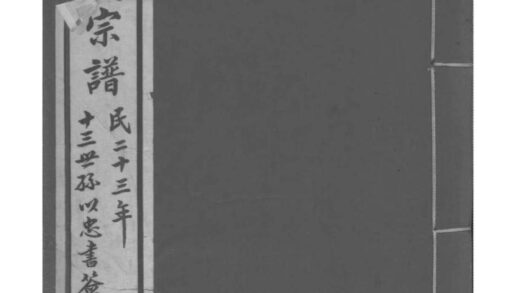 宗譜
民二十三年
十三世孫以忠書簽